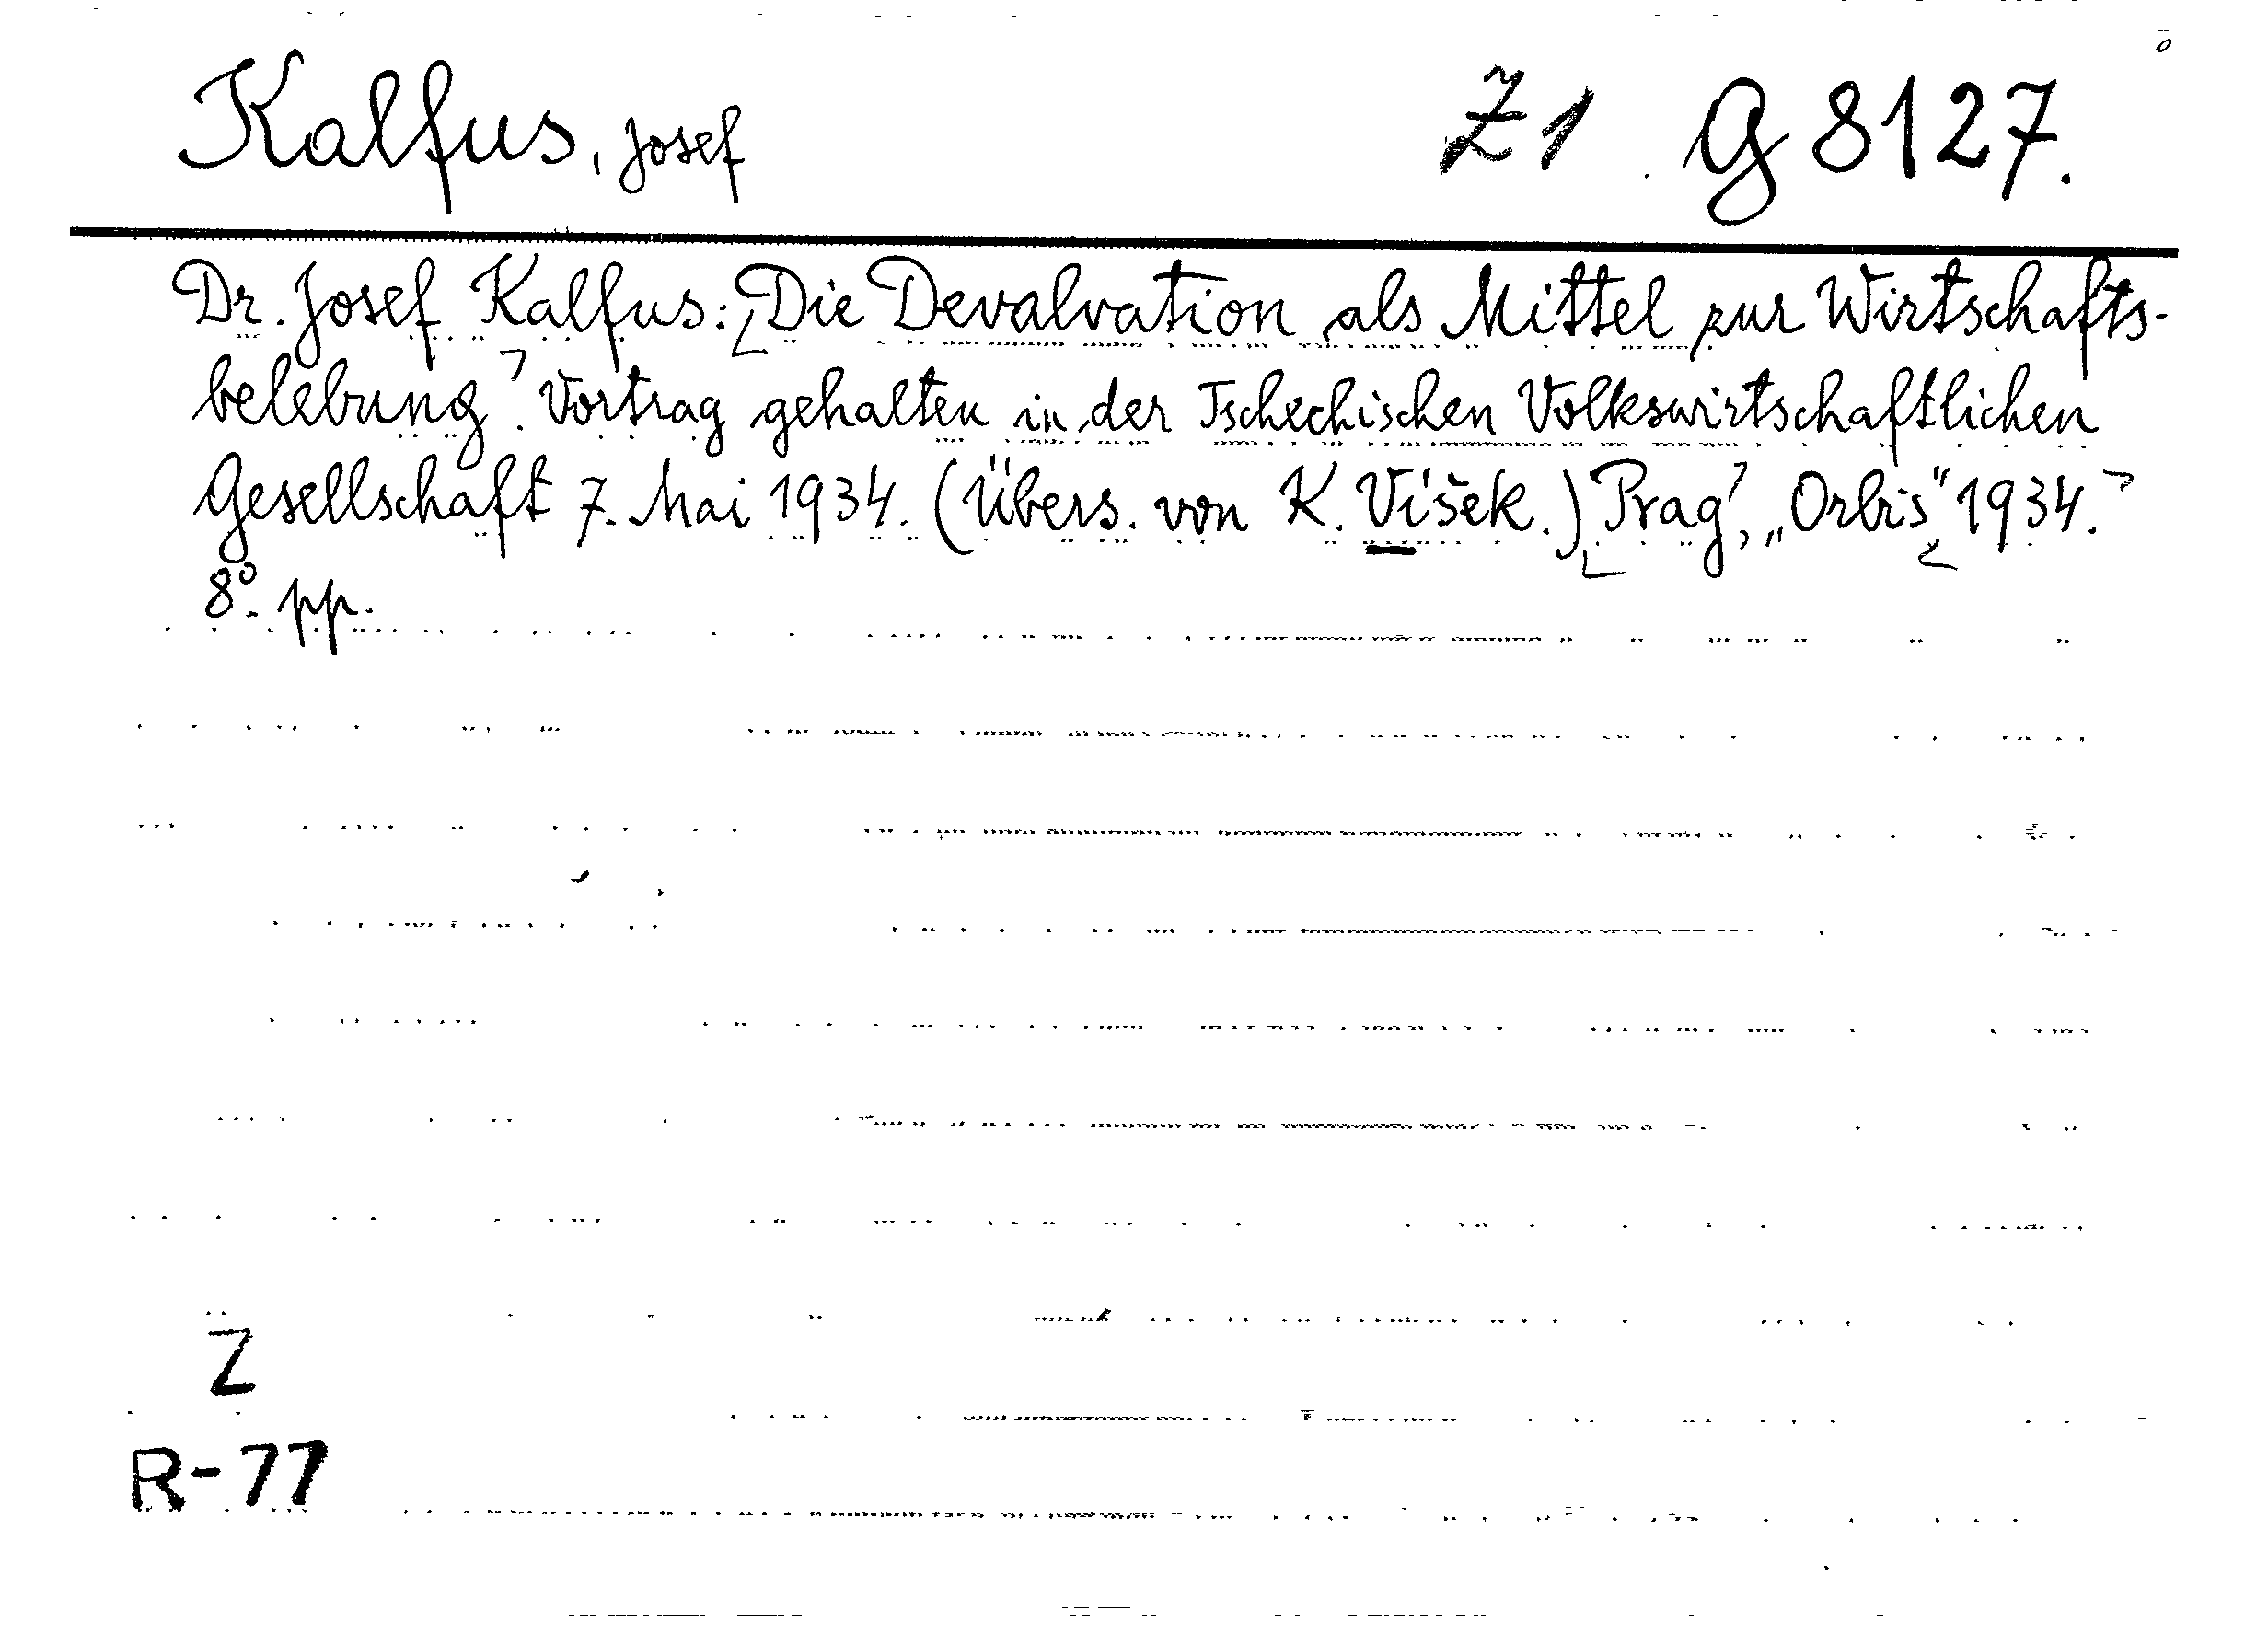 Kalfus, Josef Z1 G 8127.
Dr. Josef Kalfus: Die Devalvation als Mittel zur Wirtschafts-
belebung. Vortrag gehalten in der Tschechischen Volkswirtschaftlichen
Gesellschaft 7. Mai 1934. (Übers. von K. Víšek.) Prag, „Orbis" 1934.
8°. pp.
Z
R-77